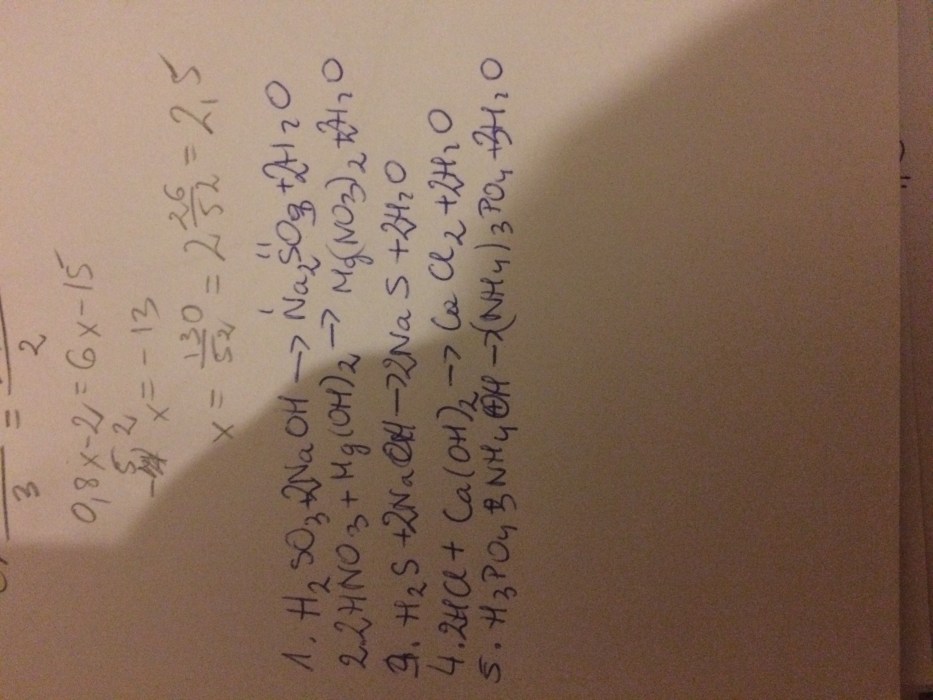 3 = 2
0,8x-2 = 6x-15
5,2 x = -13
x = 130/52 = 2 26/52 = 2,5
1. H₂SO₃+2NaOH → Na₂SO₃+2H₂O
2. 2HNO₃ + Mg(OH)₂ → Mg(NO₃)₂ + 2H₂O
3. H₂S +2NaOH → 2NaS +2H₂O
4. 2HCl + Ca(OH)₂ → CaCl₂ +2H₂O
5. H₃PO₄ + 3NH₄OH → (NH₄)₃PO₄ + 3H₂O